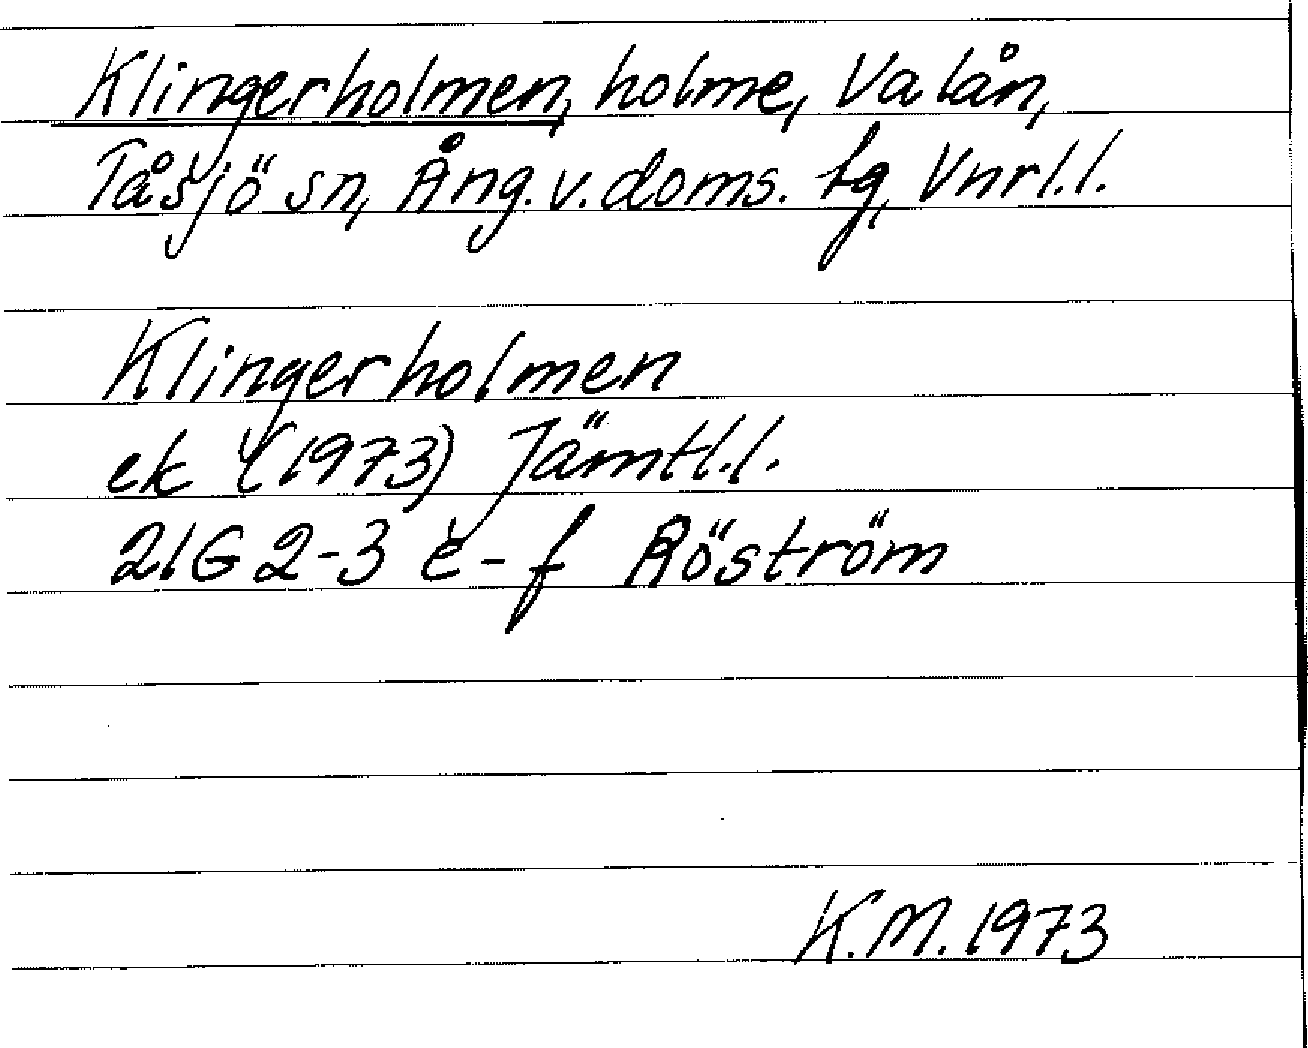 Klingerholmen, holme, Valån,
Tåsjö sn, Ång. v. doms. tg, Vnrl. l.
Klingerholmen
ek (1973) Jämtl. l.
21G 2-3 e-f Röström
K.M. 1973